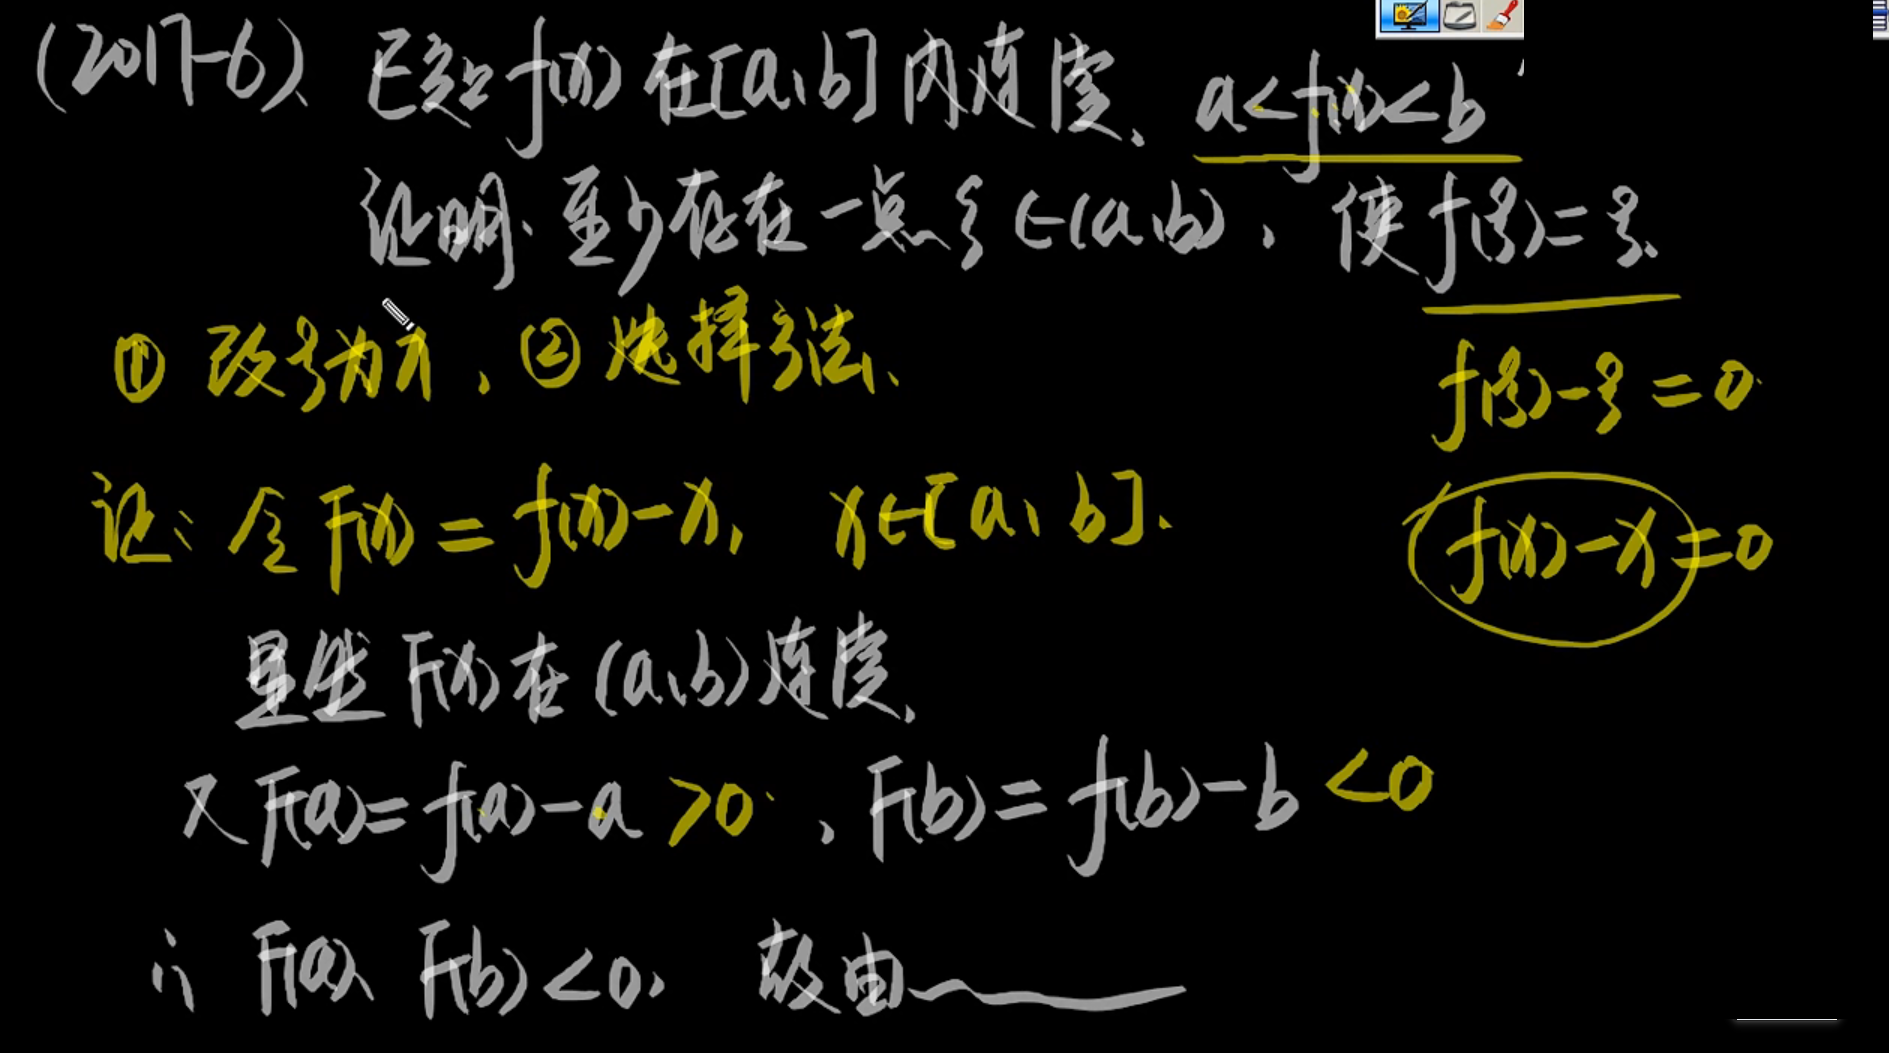 (2017-6)、已知f(x)在[a,b]内连续、a<f(x)<b
证明:至少存在一点ξ∈(a,b),使f(ξ)=ξ.
① 改ξ为x,② 选择方法、
f(ξ)-ξ=0.
证:令F(x)=f(x)-x, x∈[a,b].
f(x)-x=0
显然F(x)在(a,b)连续,
又F(a)=f(a)-a>0,F(b)=f(b)-b<0
∴ F(a)、F(b)<0, 故由